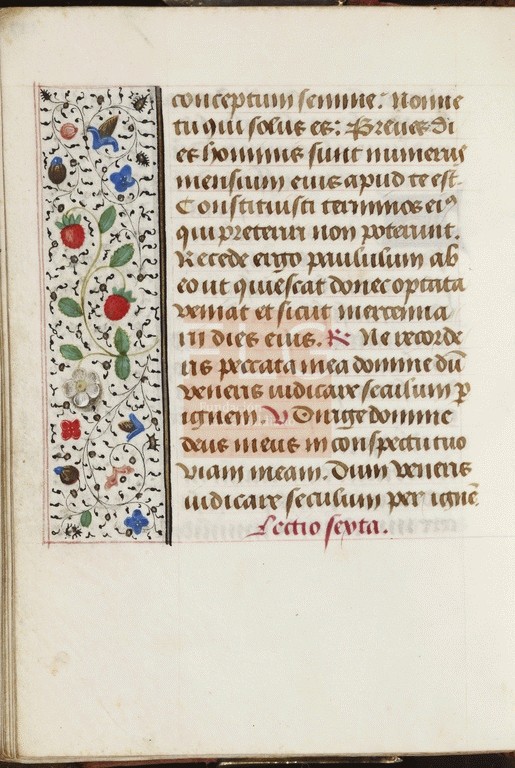 conceptum semine. Nonne
tu qui solus es: Breues di
es hominis sunt numerus
mensium eius apud te est.
Constituisti terminos ei⁹
qui preteriri non poterunt.
Recede ergo paululum ab
eo ut quiescat donec optata
veniat et sicut mercenna
rii dies eius. R Ne recorde
ris peccata mea domine dū
veneris iudicare seculum p
ignem V Dirige domine
deus meus in conspectu tuo
viam meam. Dum veneris
iudicare seculum per ignē
Lectio sexta.